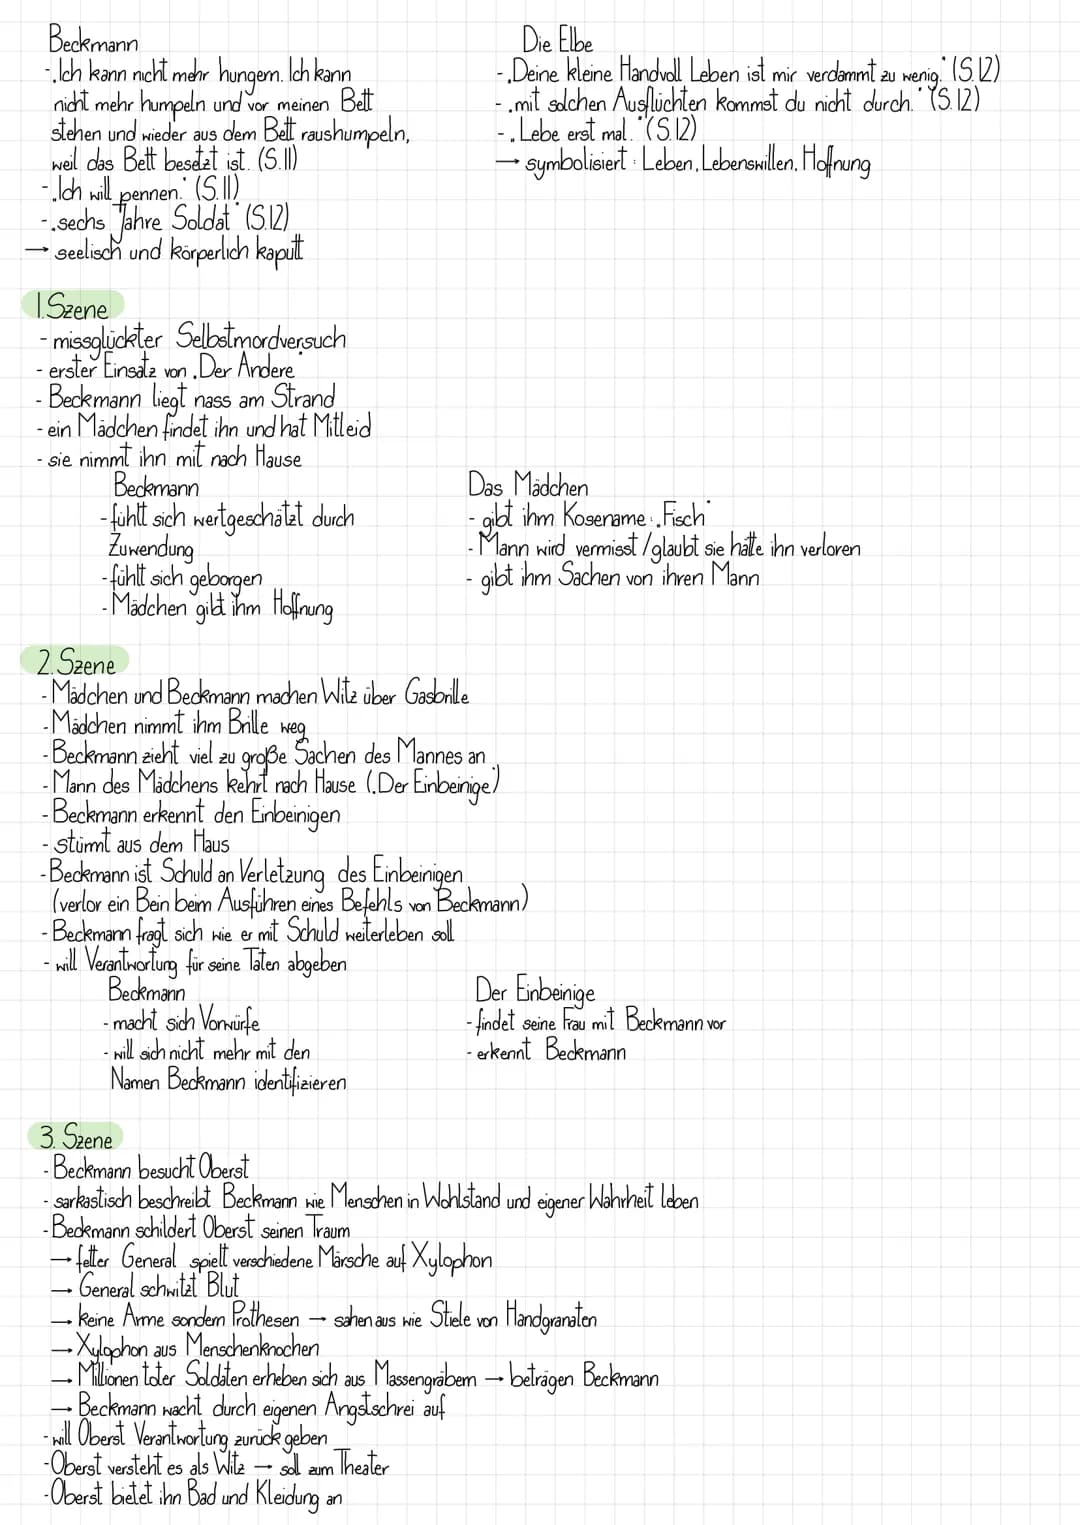 Beckmann
- „Ich kann nicht mehr hungern. Ich kann
nicht mehr humpeln und vor meinen Bett
stehen und wieder aus dem Bett raushumpeln,
weil das Bett besetzt ist. (S.11)
- „Ich will pennen." (S.11)
- „sechs Jahre Soldat" (S.12)
→ seelisch und körperlich kaputt
Die Elbe
- „Deine kleine Handvoll Leben ist mir verdammt zu wenig." (S.12)
- „mit solchen Ausflüchten kommst du nicht durch." (S.12)
- „Lebe erst mal." (S.12)
→ symbolisiert: Leben, Lebenswillen, Hoffnung
1. Szene
- missglückter Selbstmordversuch
- erster Einsatz von „Der Andere"
- Beckmann liegt nass am Strand
- ein Mädchen findet ihn und hat Mitleid
- sie nimmt ihn mit nach Hause
Beckmann
- fühlt sich wertgeschätzt durch
Zuwendung
- fühlt sich geborgen
- Mädchen gibt ihm Hoffnung
Das Mädchen
- gibt ihm Kosename: „Fisch"
- Mann wird vermisst/glaubt sie hätte ihn verloren
- gibt ihm Sachen von ihren Mann
2. Szene
- Mädchen und Beckmann machen Witz über Gasbrille
- Mädchen nimmt ihm Brille weg
- Beckmann zieht viel zu große Sachen des Mannes an
- Mann des Mädchens kehrt nach Hause („Der Einbeinige")
- Beckmann erkennt den Einbeinigen
- stürmt aus dem Haus
- Beckmann ist Schuld an Verletzung des Einbeinigen
(verlor ein Bein beim Ausführen eines Befehls von Beckmann)
- Beckmann fragt sich wie er mit Schuld weiterleben soll
- will Verantwortung für seine Taten abgeben
Beckmann
- macht sich Vorwürfe
- will sich nicht mehr mit den
Namen Beckmann identifizieren
Der Einbeinige
- findet seine Frau mit Beckmann vor
- erkennt Beckmann
3. Szene
- Beckmann besucht Oberst
- sarkastisch beschreibt Beckmann wie Menschen in Wohlstand und eigener Wahrheit leben
- Beckmann schildert Oberst seinen Traum
→ fetter General spielt verschiedene Märsche auf Xylophon
→ General schwitzt Blut
→ keine Arme sondern Prothesen → sahen aus wie Stiele von Handgranaten
→ Xylophon aus Menschenknochen
→ Millionen toter Soldaten erheben sich aus Massengräbern → beträgen Beckmann
→ Beckmann wacht durch eigenen Angstschrei auf
- will Oberst Verantwortung zurück geben
- Oberst versteht es als Witz → soll zum Theater
- Oberst bietet ihn Bad und Kleidung an